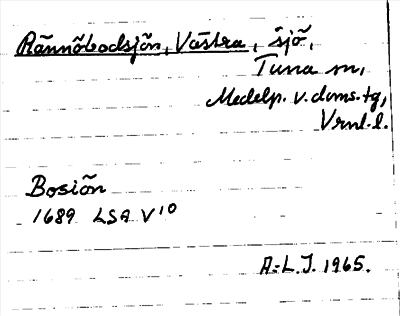 Rännöbodsjön, Västra, sjö,
Tuna sn,
Medelp. v. doms.tg,
Vrnl. l.
Bosiön
1689 LSA V¹⁰
A.-L.J. 1965.